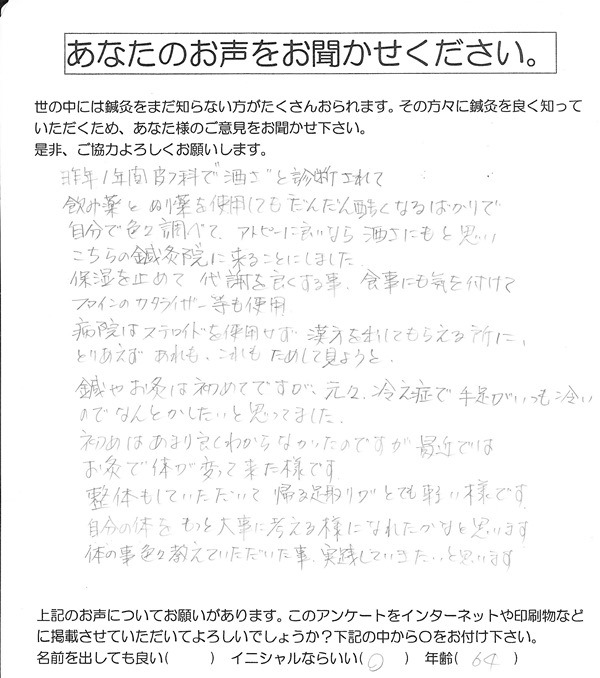 あなたのお声をお聞かせください。
世の中には鍼灸をまだ知らない方がたくさんおられます。その方々に鍼灸を良く知って
いただくため、あなた様のご意見をお聞かせ下さい。
是非、ご協力よろしくお願いします。
昨年1年間皮フ科で"酒さ"と診断されて
飲み薬とぬり薬を使用してもだんだん酷くなるばかりで
自分で色々調べて、アトピーに良いなら酒さにもと思い
こちらの鍼灸院に来ることにしました。
保湿を止めて代謝を良くする事、食事にも気を付けて
フロインのカタライザー等も使用
病院はステロイドを使用せず漢方を出してもらえる所に、
とりあえずあれも、これもためして見ようと、
鍼やお灸は初めてですが、元々、冷え症で手足がいつも冷い
のでなんとかしたいと思ってました。
初めはあまり良くわからなかったのですが最近では
お灸で体が変って来た様です。
整体もしていただいて帰る足取りがとても軽い様です。
自分の体をもっと大事に考える様になれたかなと思います
体の事色々教えていただいた事、実践していきたいと思います
上記のお声についてお願いがあります。このアンケートをインターネットや印刷物など
に掲載させていただいてよろしいでしょうか?下記の中から〇をお付け下さい。
名前を出しても良い( ) イニシャルならいい(〇) 年齢(64)